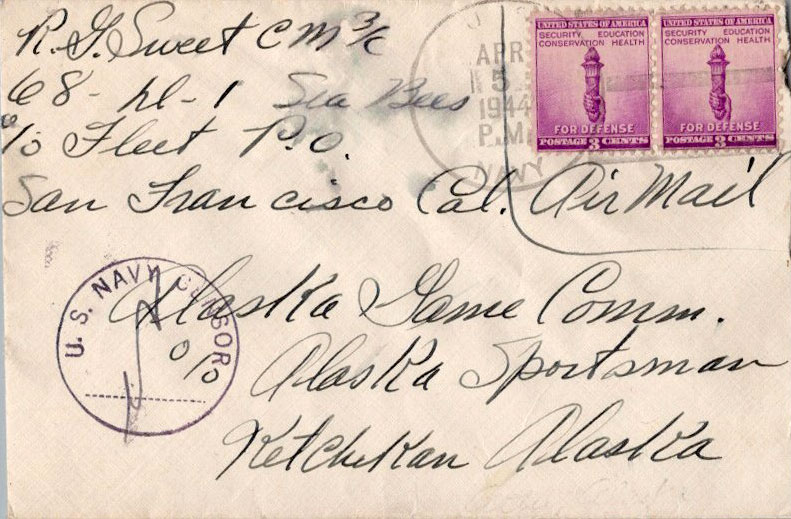 R. G. Sweet CM 3/c
68 - hd - 1 Sea Bees
c/o Fleet P.O.
San Francisco Cal.
U.S.
APR
5
1944
P.M.
NAVY
UNITED STATES OF AMERICA
SECURITY EDUCATION
CONSERVATION HEALTH
FOR DEFENSE
POSTAGE 3 CENTS
UNITED STATES OF AMERICA
SECURITY EDUCATION
CONSERVATION HEALTH
FOR DEFENSE
POSTAGE 3 CENTS
Air Mail
U. S. NAVY CENSOR
Alaska Game Comm.
c/o
Alaska Sportsman
Ketchekan Alaska